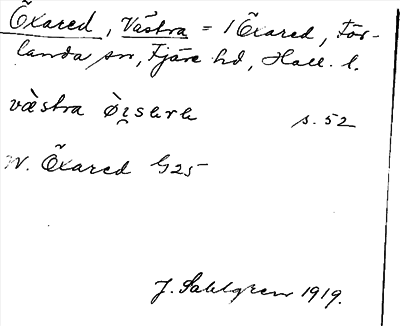 Õxared, Västra = 1 Õxared, För-
landa sn, Fjäre hd, Hall. l.
væ̀stra s. 52
W. Õxared G25
J. Sahlgren 1919.